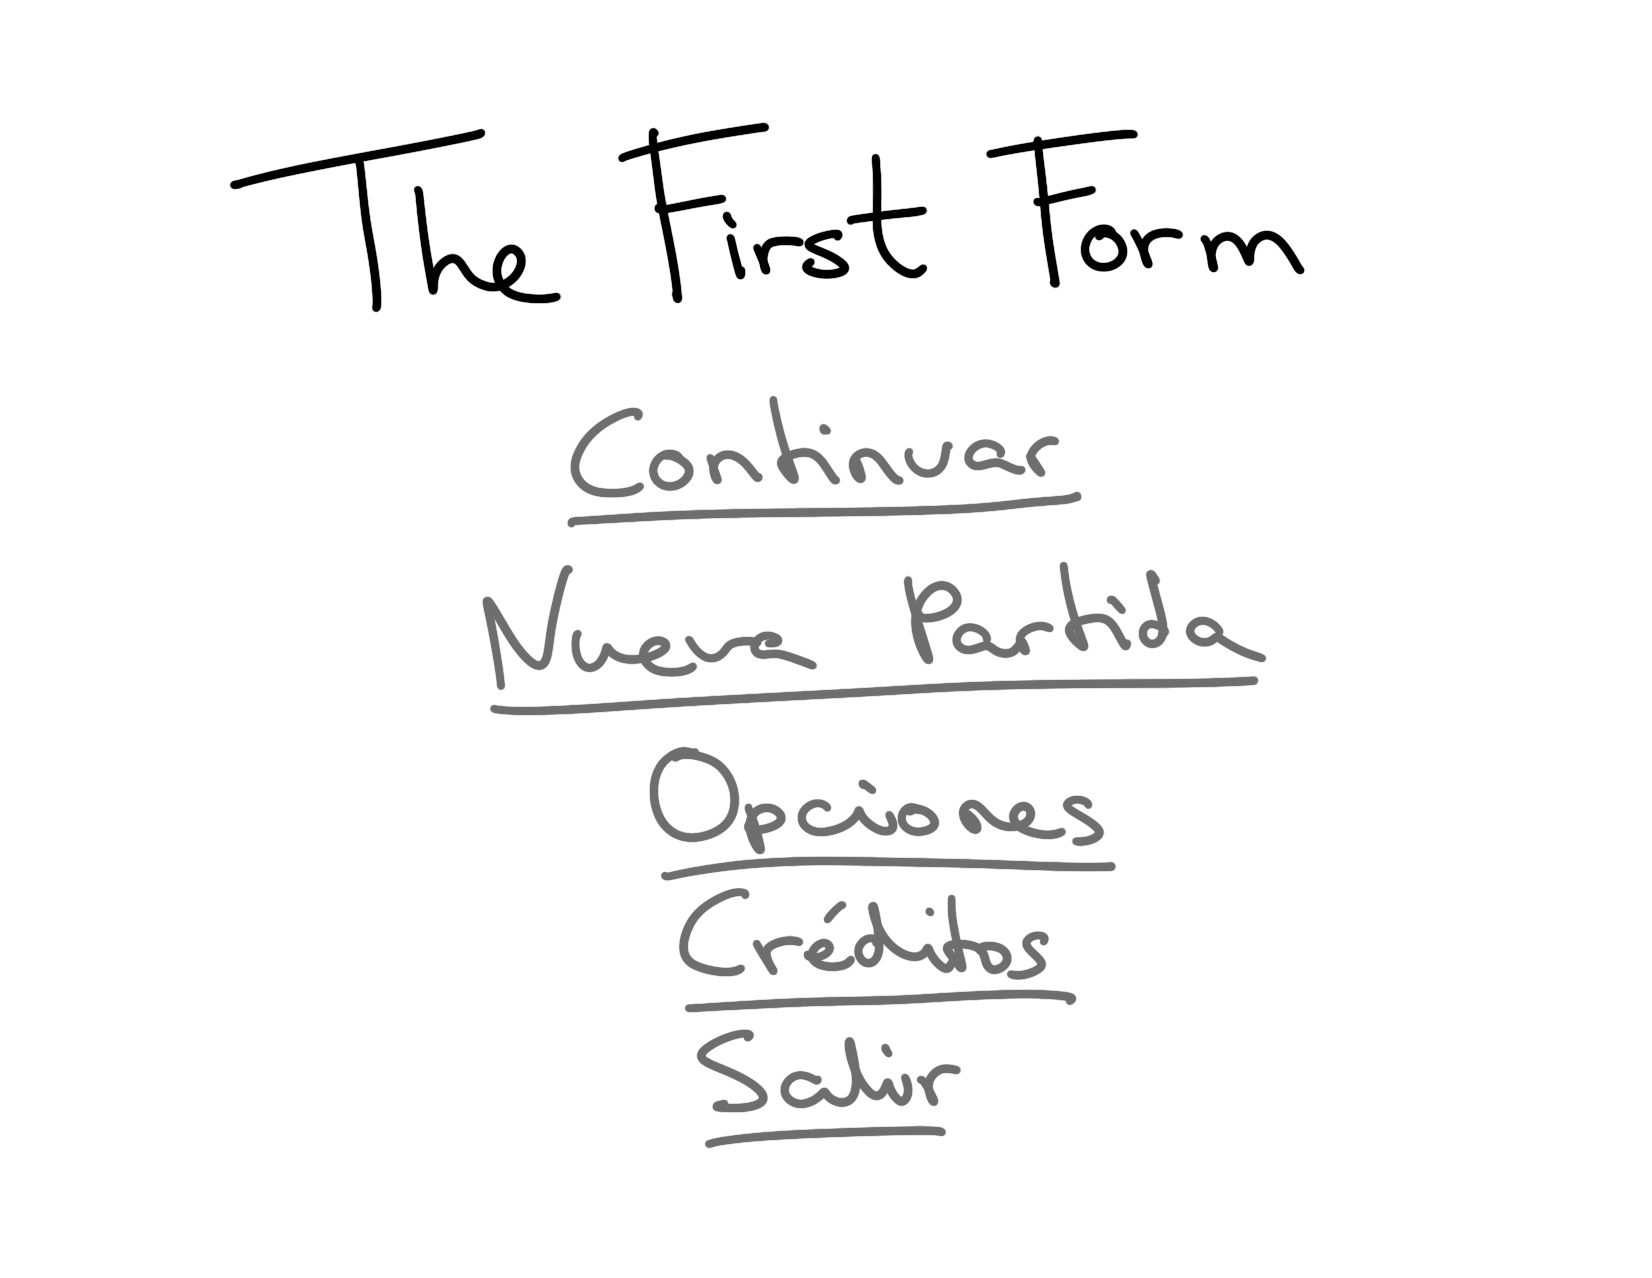 The First Form
Continuar
Nueva Partida
Opciones
Créditos
Salir